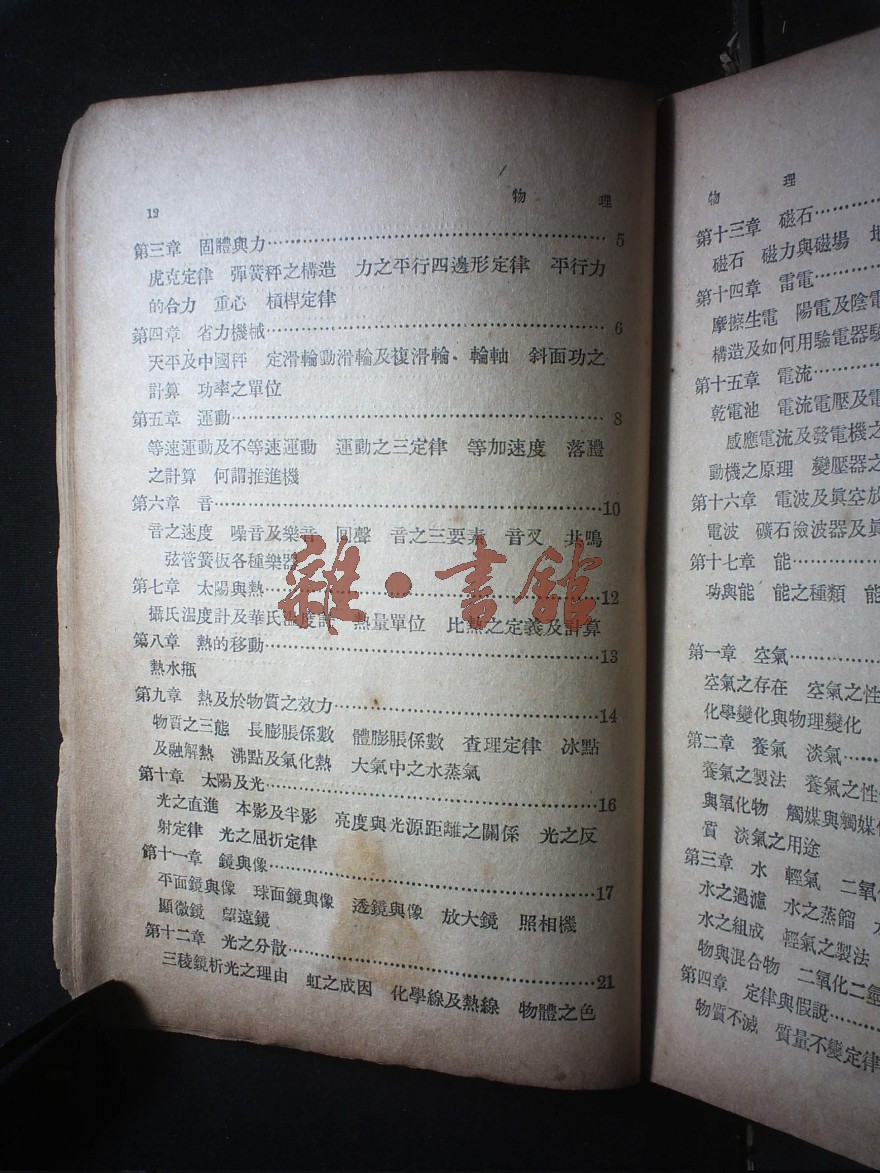 12
物 理
第三章 固體與力 5
虎克定律 彈簧秤之構造 力之平行四邊形定律 平行力
的合力 重心 槓桿定律
第四章 省力機械 6
天平及中國秤 定滑輪動滑輪及複滑輪、輪軸 斜面功之
計算 功率之單位
第五章 運動 8
等速運動及不等速運動 運動之三定律 等加速度 落體
之計算 何謂推進機
第六章 音 10
音之速度 噪音及樂音 回聲 音之三要素 音叉 共鳴
弦管簧板各種樂器
第七章 太陽與熱 12
攝氏温度計及華氏温度計 熱量單位 比熱之定義及計算
第八章 熱的移動 13
熱水瓶
第九章 熱及於物質之效力 14
物質之三態 長膨脹係數 體膨脹係數 查理定律 冰點
及融解熱 沸點及氣化熱 大氣中之水蒸氣
第十章 太陽及光 16
光之直進 本影及半影 亮度與光源距離之關係 光之反
射定律 光之屈折定律
第十一章 鏡與像 17
平面鏡與像 球面鏡與像 透鏡與像 放大鏡 照相機
顯微鏡 望遠鏡
第十二章 光之分散 21
三稜鏡析光之理由 虹之成因 化學線及熱線 物體之色
雜·書館
物 理
第十三章 磁石
磁石 磁力與磁場
第十四章 雷電
摩擦生電 陽電及陰電
構造及如何用驗電器驗
第十五章 電流
乾電池 電流電壓及電
感應電流及發電機之
動機之原理 變壓器之
第十六章 電波及眞空放
電波 礦石檢波器及眞
第十七章 能
功與能 能之種類 能
第一章 空氣
空氣之存在 空氣之性
化學變化與物理變化
第二章 養氣 淡氣
養氣之製法 養氣之性
與氧化物 觸媒與觸媒作
質 淡氣之用途
第三章 水 輕氣 二氧化
水之過濾 水之蒸餾
水之組成 輕氣之製法
物與混合物 二氧化二氫
第四章 定律與假說
物質不滅 質量不變定律